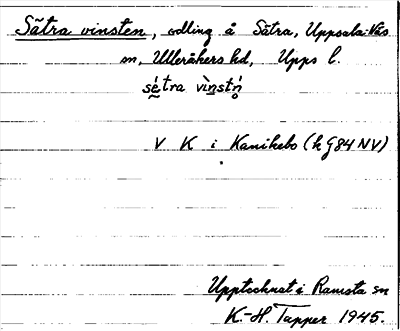 Sätra vinsten, odling å Sätra, Uppsala-Näs
sn, Ulleråkers hd, Upps l.
sę́tra vìnstń̥
V K i Kanikebo (k G84 NV)
Upptecknat i Ramsta sn
K.-H. Tapper 1945.